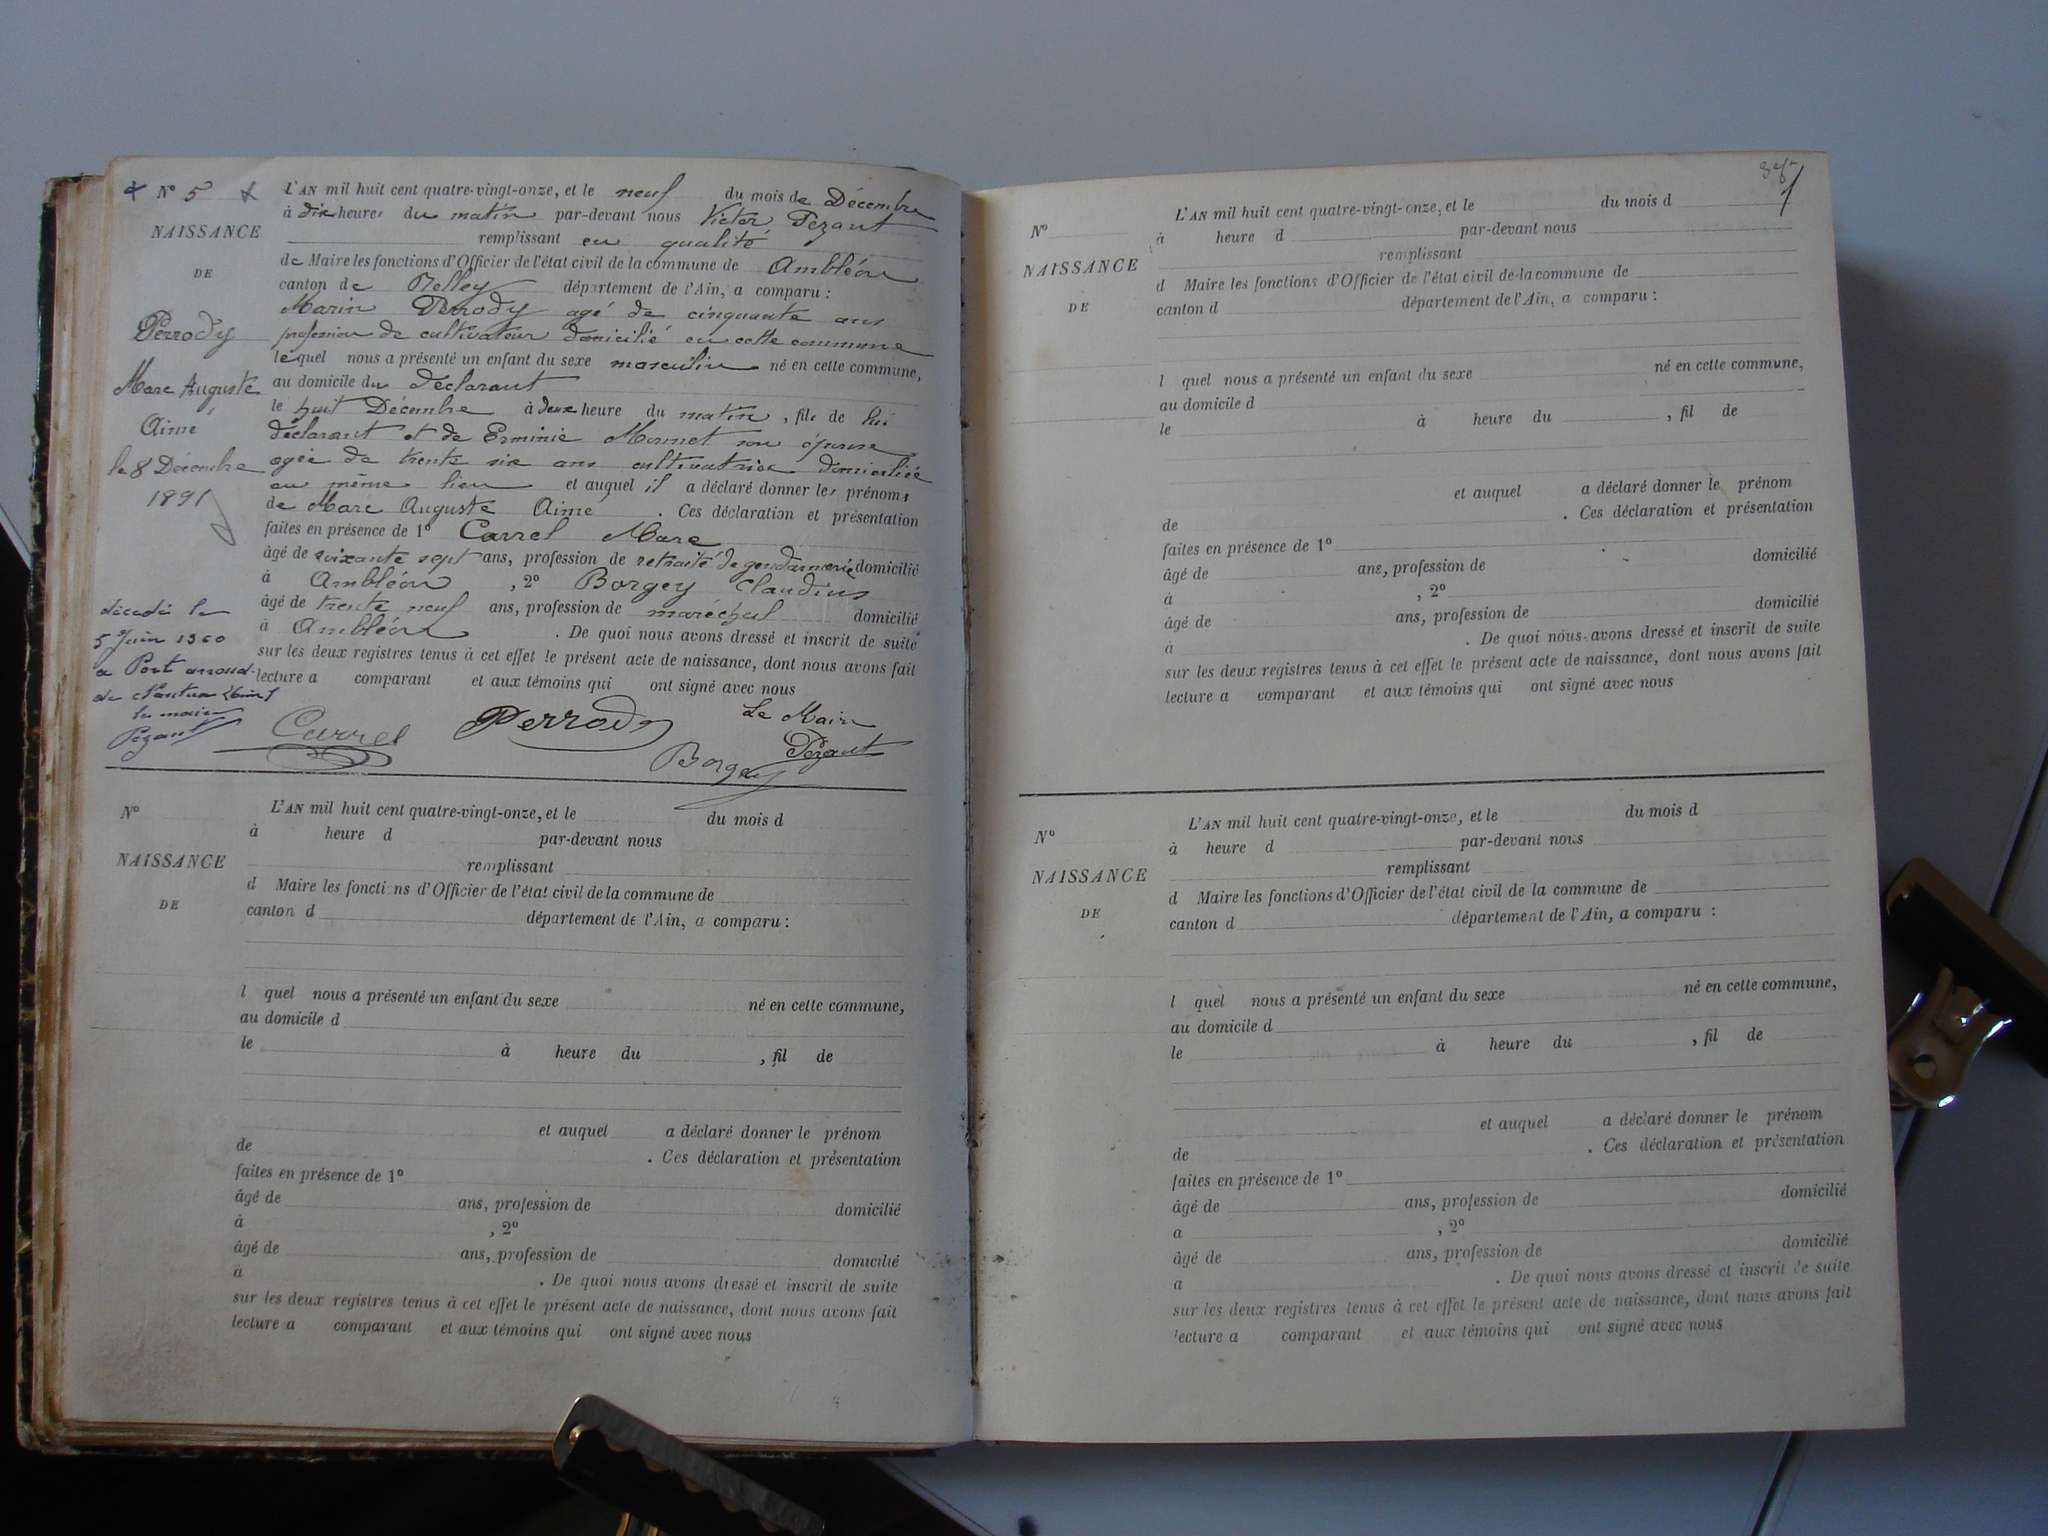 N° 5
NAISSANCE
DE
Perrody
Marc Auguste
Aimé
le 8 Décembre
1891
décédé le
5 Juin 1960
a Port arrond.
de Nantua (Ain)
le maire
Pezant
L'AN mil huit cent quatre-vingt-onze, et le neuf du mois de Décembre
à dix heures du matin par-devant nous Victor Pezant
remplissant en qualité
de Maire les fonctions d'Officier de l'état civil de la commune de Ambléon
canton de Belley département de l'Ain, a comparu :
Marin Perrody agé de cinquante ans
profession de cultivateur domicilié en cette commune
lequel nous a présenté un enfant du sexe masculin né en cette commune,
au domicile du déclarant
le huit Décembre à deux heure du matin, fils de lui
déclarant et de Erminie Monnet son épouse
agée de trente six ans cultivatrice domiciliée
au même lieu et auquel il a déclaré donner les prénoms
de Marc Auguste Aimé . Ces déclaration et présentation
faites en présence de 1° Carrel Marc
âgé de soixante sept ans, profession de retraité de gendarmerie domicilié
à Ambléon , 2° Borgey Claudius
âgé de trente neuf ans, profession de maréchal domicilié
à Ambléon . De quoi nous avons dressé et inscrit de suite
sur les deux registres tenus à cet effet le présent acte de naissance, dont nous avons fait
lecture a comparant et aux témoins qui ont signé avec nous
Carrel Perrody Le Maire
Borgey Pezant
N°
NAISSANCE
DE
L'AN mil huit cent quatre-vingt-onze, et le du mois d
à heure d par-devant nous
remplissant
d Maire les fonctions d'Officier de l'état civil de la commune de
canton d département de l'Ain, a comparu :
l quel nous a présenté un enfant du sexe né en cette commune,
au domicile d
le à heure du , fil de
et auquel a déclaré donner le prénom
de . Ces déclaration et présentation
faites en présence de 1°
âgé de ans, profession de domicilié
à , 2°
âgé de ans, profession de domicilié
à . De quoi nous avons dressé et inscrit de suite
sur les deux registres tenus à cet effet le présent acte de naissance, dont nous avons fait
lecture a comparant et aux témoins qui ont signé avec nous
N°
NAISSANCE
DE
L'AN mil huit cent quatre-vingt-onze, et le du mois d
à heure d par-devant nous
remplissant
d Maire les fonctions d'Officier de l'état civil de la commune de
canton d département de l'Ain, a comparu :
l quel nous a présenté un enfant du sexe né en cette commune,
au domicile d
le à heure du , fil de
et auquel a déclaré donner le prénom
de . Ces déclaration et présentation
faites en présence de 1°
âgé de ans, profession de domicilié
à , 2°
âgé de ans, profession de domicilié
à . De quoi nous avons dressé et inscrit de suite
sur les deux registres tenus à cet effet le présent acte de naissance, dont nous avons fait
lecture a comparant et aux témoins qui ont signé avec nous
N°
NAISSANCE
DE
L'AN mil huit cent quatre-vingt-onze, et le du mois d
à heure d par-devant nous
remplissant
d Maire les fonctions d'Officier de l'état civil de la commune de
canton d département de l'Ain, a comparu :
l quel nous a présenté un enfant du sexe né en cette commune,
au domicile d
le à heure du , fil de
et auquel a déclaré donner le prénom
de . Ces déclaration et présentation
faites en présence de 1°
âgé de ans, profession de domicilié
a , 2°
âgé de ans, profession de domicilié
a . De quoi nous avons dressé et inscrit de suite
sur les deux registres tenus à cet effet le présent acte de naissance, dont nous avons fait
lecture a comparant et aux témoins qui ont signé avec nous